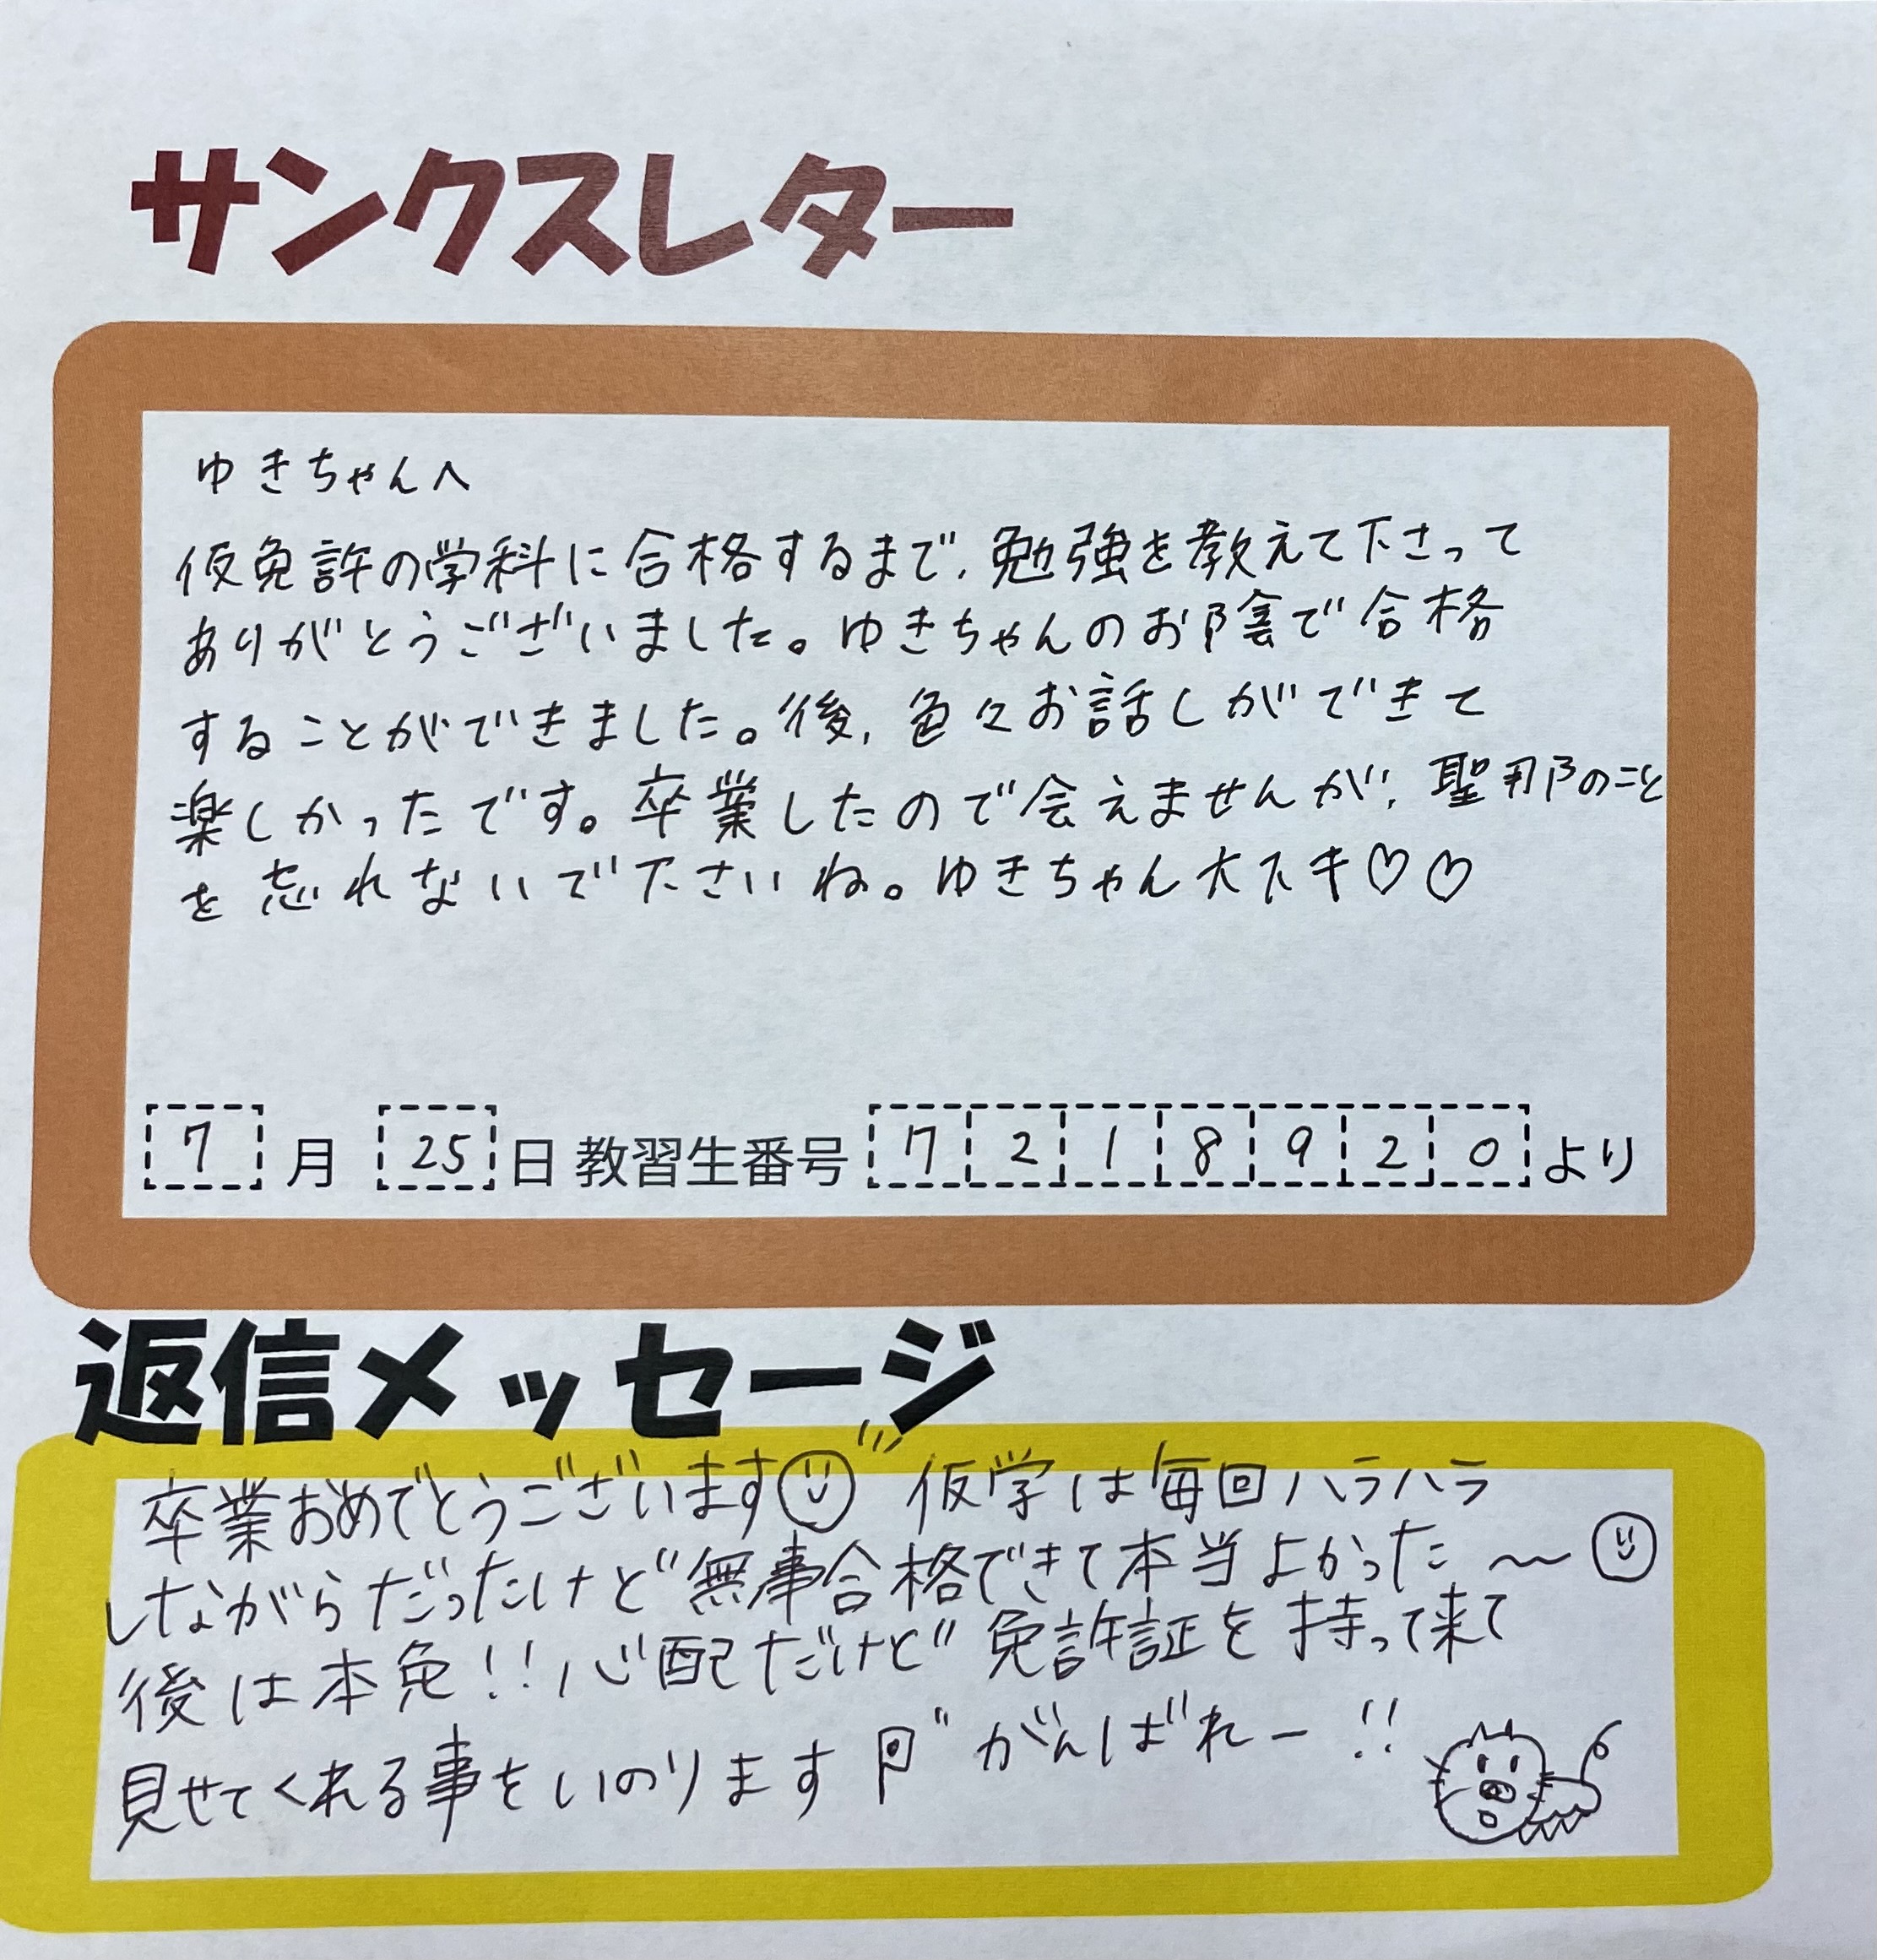 サンクスレター
ゆきちゃんへ
仮免許の学科に合格するまで、勉強を教えて下さって
ありがとうございました。ゆきちゃんのお陰で合格
することができました。後、色々お話しができて
楽しかったです。卒業したので会えませんが、聖那のこと
を忘れないで下さいね。ゆきちゃん大スキ♡♡
7月25日 教習生番号 7218920より
返信メッセージ
卒業おめでとうございます 仮学は毎回ハラハラ
しながらだったけど無事合格できて本当よかった〜
後は本免!!心配だけど免許証を持って来て
見せてくれる事をいのります がんばれー!!